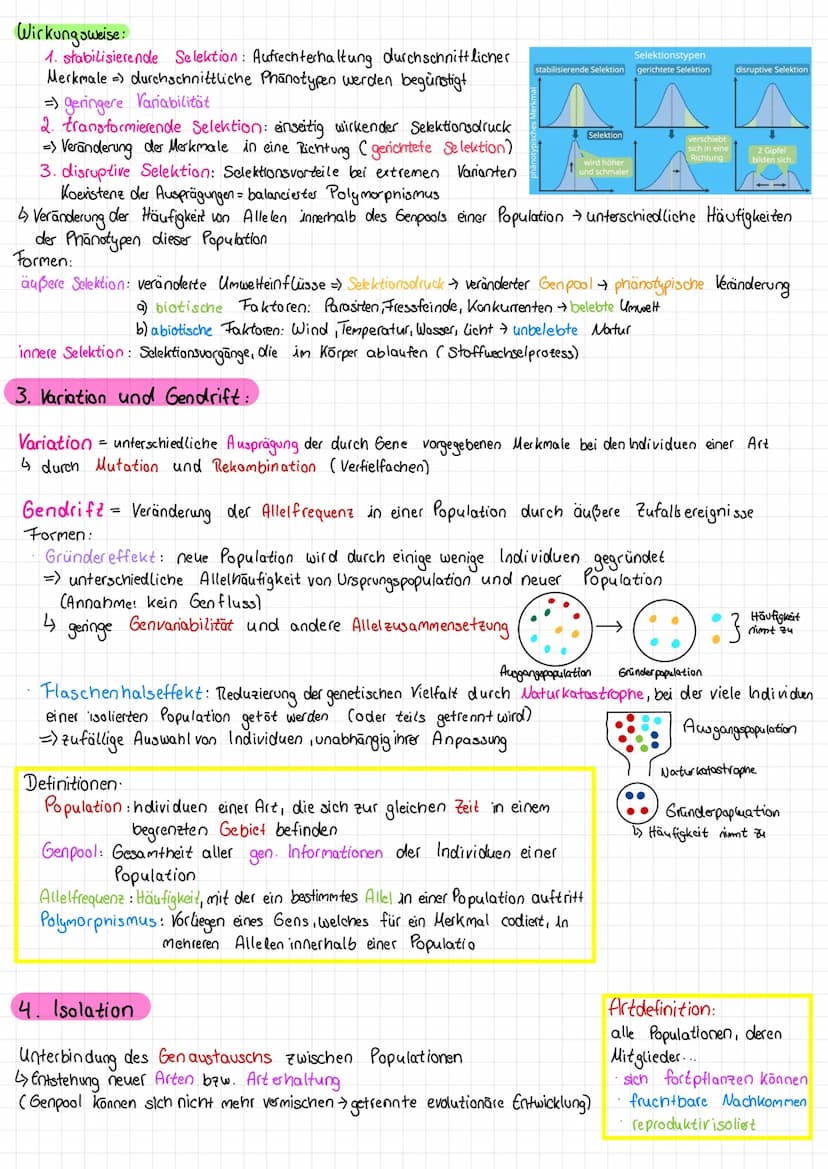 Wirkungsweise:
1. stabilisierende Selektion: Aufrechterhaltung durchschnittlicher
Merkmale => durchschnittliche Phänotypen werden begünstigt
=> geringere Variabilität
2. transformierende Selektion: einseitig wirkender Selektionsdruck
=> Veränderung der Merkmale in eine Richtung (gerichtete Selektion)
3. disruptive Selektion: Selektionsvorteile bei extremen Varianten
Koexistenz der Ausprägungen = balancierter Polymorphismus
Selektionstypen
stabilisierende Selektion gerichtete Selektion disruptive Selektion
phänotypisches Merkmal
Selektion
wird höher
und schmaler
verschiebt
sich in eine
Richtung
2 Gipfel
bilden sich
↳ Veränderung der Häufigkeit von Allelen innerhalb des Genpools einer Population → unterschiedliche Häufigkeiten
der Phänotypen dieser Population
Formen:
äußere Selektion: veränderte Umwelteinflüsse => Selektionsdruck → veränderter Genpool → phänotypische Veränderung
a) biotische Faktoren: Parasiten, Fressfeinde, Konkurrenten → belebte Umwelt
b) abiotische Faktoren: Wind, Temperatur, Wasser, Licht → unbelebte Natur
innere Selektion: Selektionsvorgänge, die im Körper ablaufen (Stoffwechselprozess)
3. Variation und Gendrift:
Variation = unterschiedliche Ausprägung der durch Gene vorgegebenen Merkmale bei den Individuen einer Art
↳ durch Mutation und Rekombination (Verfielfachen)
Gendrift = Veränderung der Allelfrequenz in einer Population durch äußere Zufallsereignisse
Formen:
· Gründereffekt: neue Population wird durch einige wenige Individuen gegründet
=> unterschiedliche Allelhäufigkeit von Ursprungspopulation und neuer Population
(Annahme: kein Genfluss)
↳ geringe Genvariabilität und andere Allelzusammensetzung
Häufigkeit
nimmt zu
Ausgangspopulation Gründerpopulation
· Flaschenhalseffekt: Reduzierung der genetischen Vielfalt durch Naturkatastrophe, bei der viele Individuen
einer isolierten Population getöt werden (oder teils getrennt wird)
=> zufällige Auswahl von Individuen, unabhängig ihrer Anpassung
Ausgangspopulation
Naturkatastrophe
Gründerpopluation
↳ Häufigkeit nimmt zu
Definitionen:
Population: Individuen einer Art, die sich zur gleichen Zeit in einem
begrenzten Gebiet befinden
Genpool: Gesamtheit aller gen. Informationen der Individuen einer
Population
Allelfrequenz: Häufigkeit, mit der ein bestimmtes Allel in einer Population auftritt
Polymorphismus: Vorliegen eines Gens, welches für ein Merkmal codiert, in
mehreren Allelen innerhalb einer Populatio
4. Isolation
Unterbindung des Genaustauschs zwischen Populationen
↳ Entstehung neuer Arten bzw. Arterhaltung
(Genpool können sich nicht mehr vermischen → getrennte evolutionäre Entwicklung)
Artdefinition:
alle Populationen, deren
Mitglieder...
· sich fortpflanzen können
· fruchtbare Nachkommen
· reproduktiv isoliert